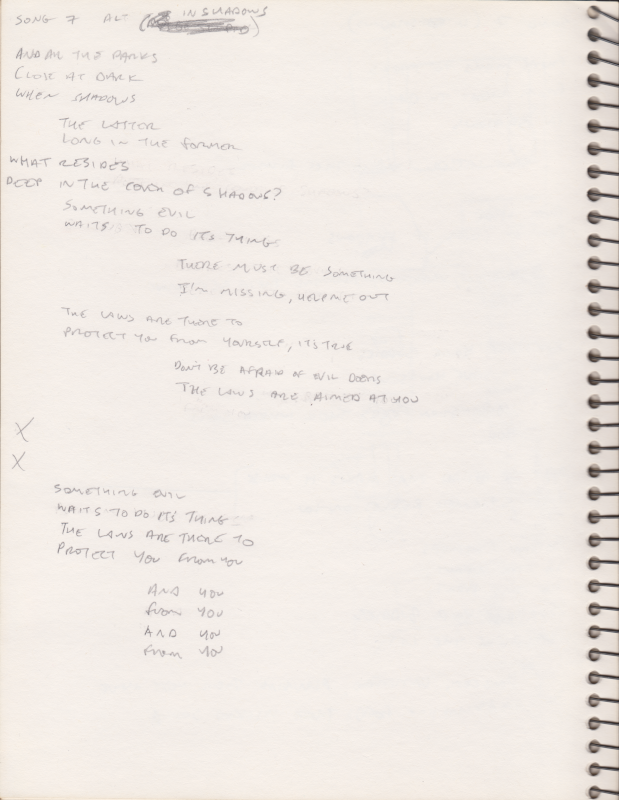 SONG 7 ALT ( IN SHADOWS )
AND ALL THE PARKS
CLOSE AT DARK
WHEN SHADOWS
THE LATTER
LONG IN THE FORMER
WHAT RESIDES
DEEP IN THE COVER OF SHADOWS?
SOMETHING EVIL
WAITS TO DO ITS THING
THERE MUST BE SOMETHING
I'M MISSING, HELP ME OUT
THE LAWS ARE THERE TO
PROTECT YOU FROM YOURSELF, ITS TRUE
DON'T BE AFRAID OF EVIL DOERS
THE LAWS ARE AIMED AT YOU
X
X
SOMETHING EVIL
WAITS TO DO ITS THING
THE LAWS ARE THERE TO
PROTECT YOU FROM YOU
AND YOU
FROM YOU
AND YOU
FROM YOU